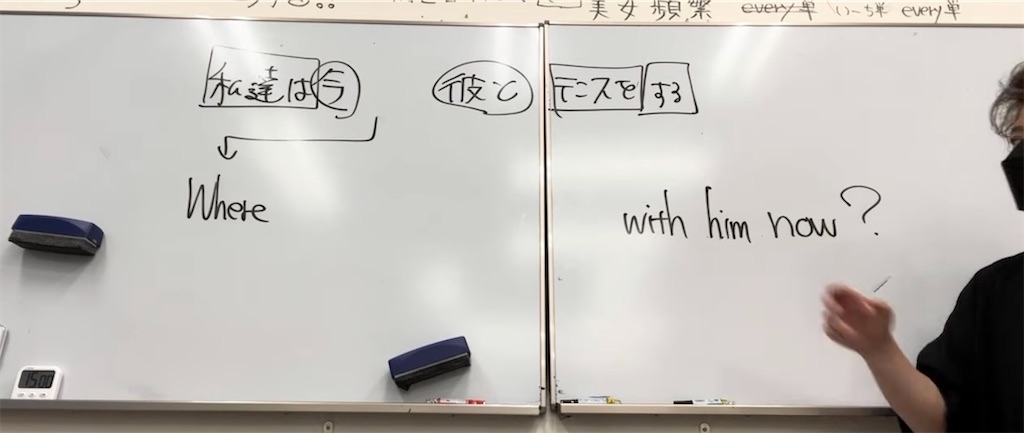 美女頻繁 every単 いーち単 every単
私達は今 彼と テニスを する
Where with him now?
15:00